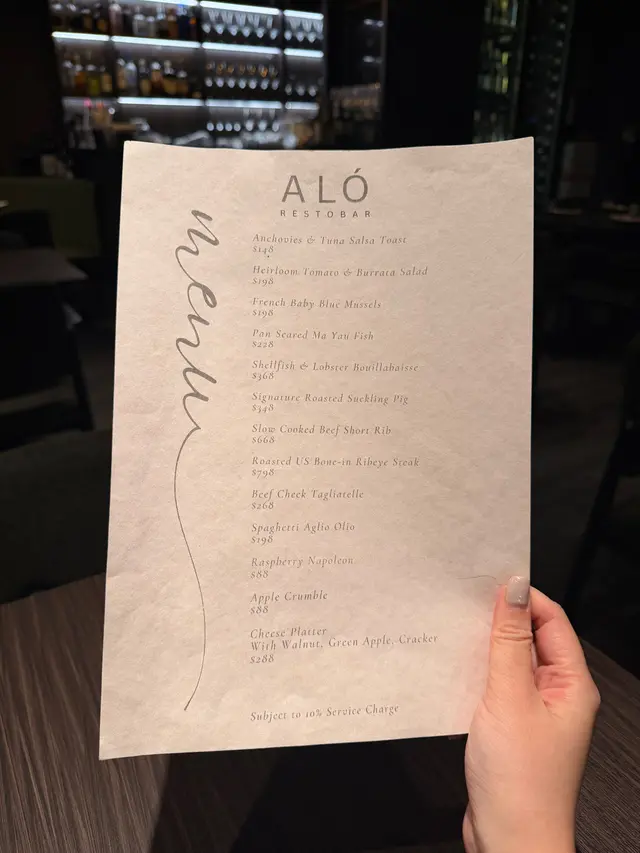 ALÓ
RESTOBAR
menu
Anchovies & Tuna Salsa Toast
$148
Heirloom Tomato & Burrata Salad
$198
French Baby Blue Mussels
$198
Pan Seared Ma Yau Fish
$228
Shellfish & Lobster Bouillabaisse
$368
Signature Roasted Suckling Pig
$348
Slow Cooked Beef Short Rib
$668
Roasted US Bone-in Ribeye Steak
$798
Beef Cheek Tagliatelle
$268
Spaghetti Aglio Olio
$198
Raspberry Napoleon
$88
Apple Crumble
$88
Cheese Platter
With Walnut, Green Apple, Cracker
$288
Subject to 10% Service Charge